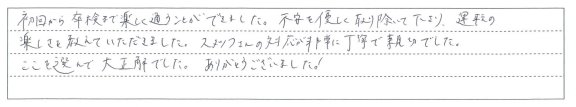 初回から卒検まで楽しく通うことができました。不安を優しく取り除いて下さり、運転の
楽しさを教えていただきました。スタッフさんの対応が非常に丁寧で親切でした。
ここを選んで大正解でした。ありがとうございました!